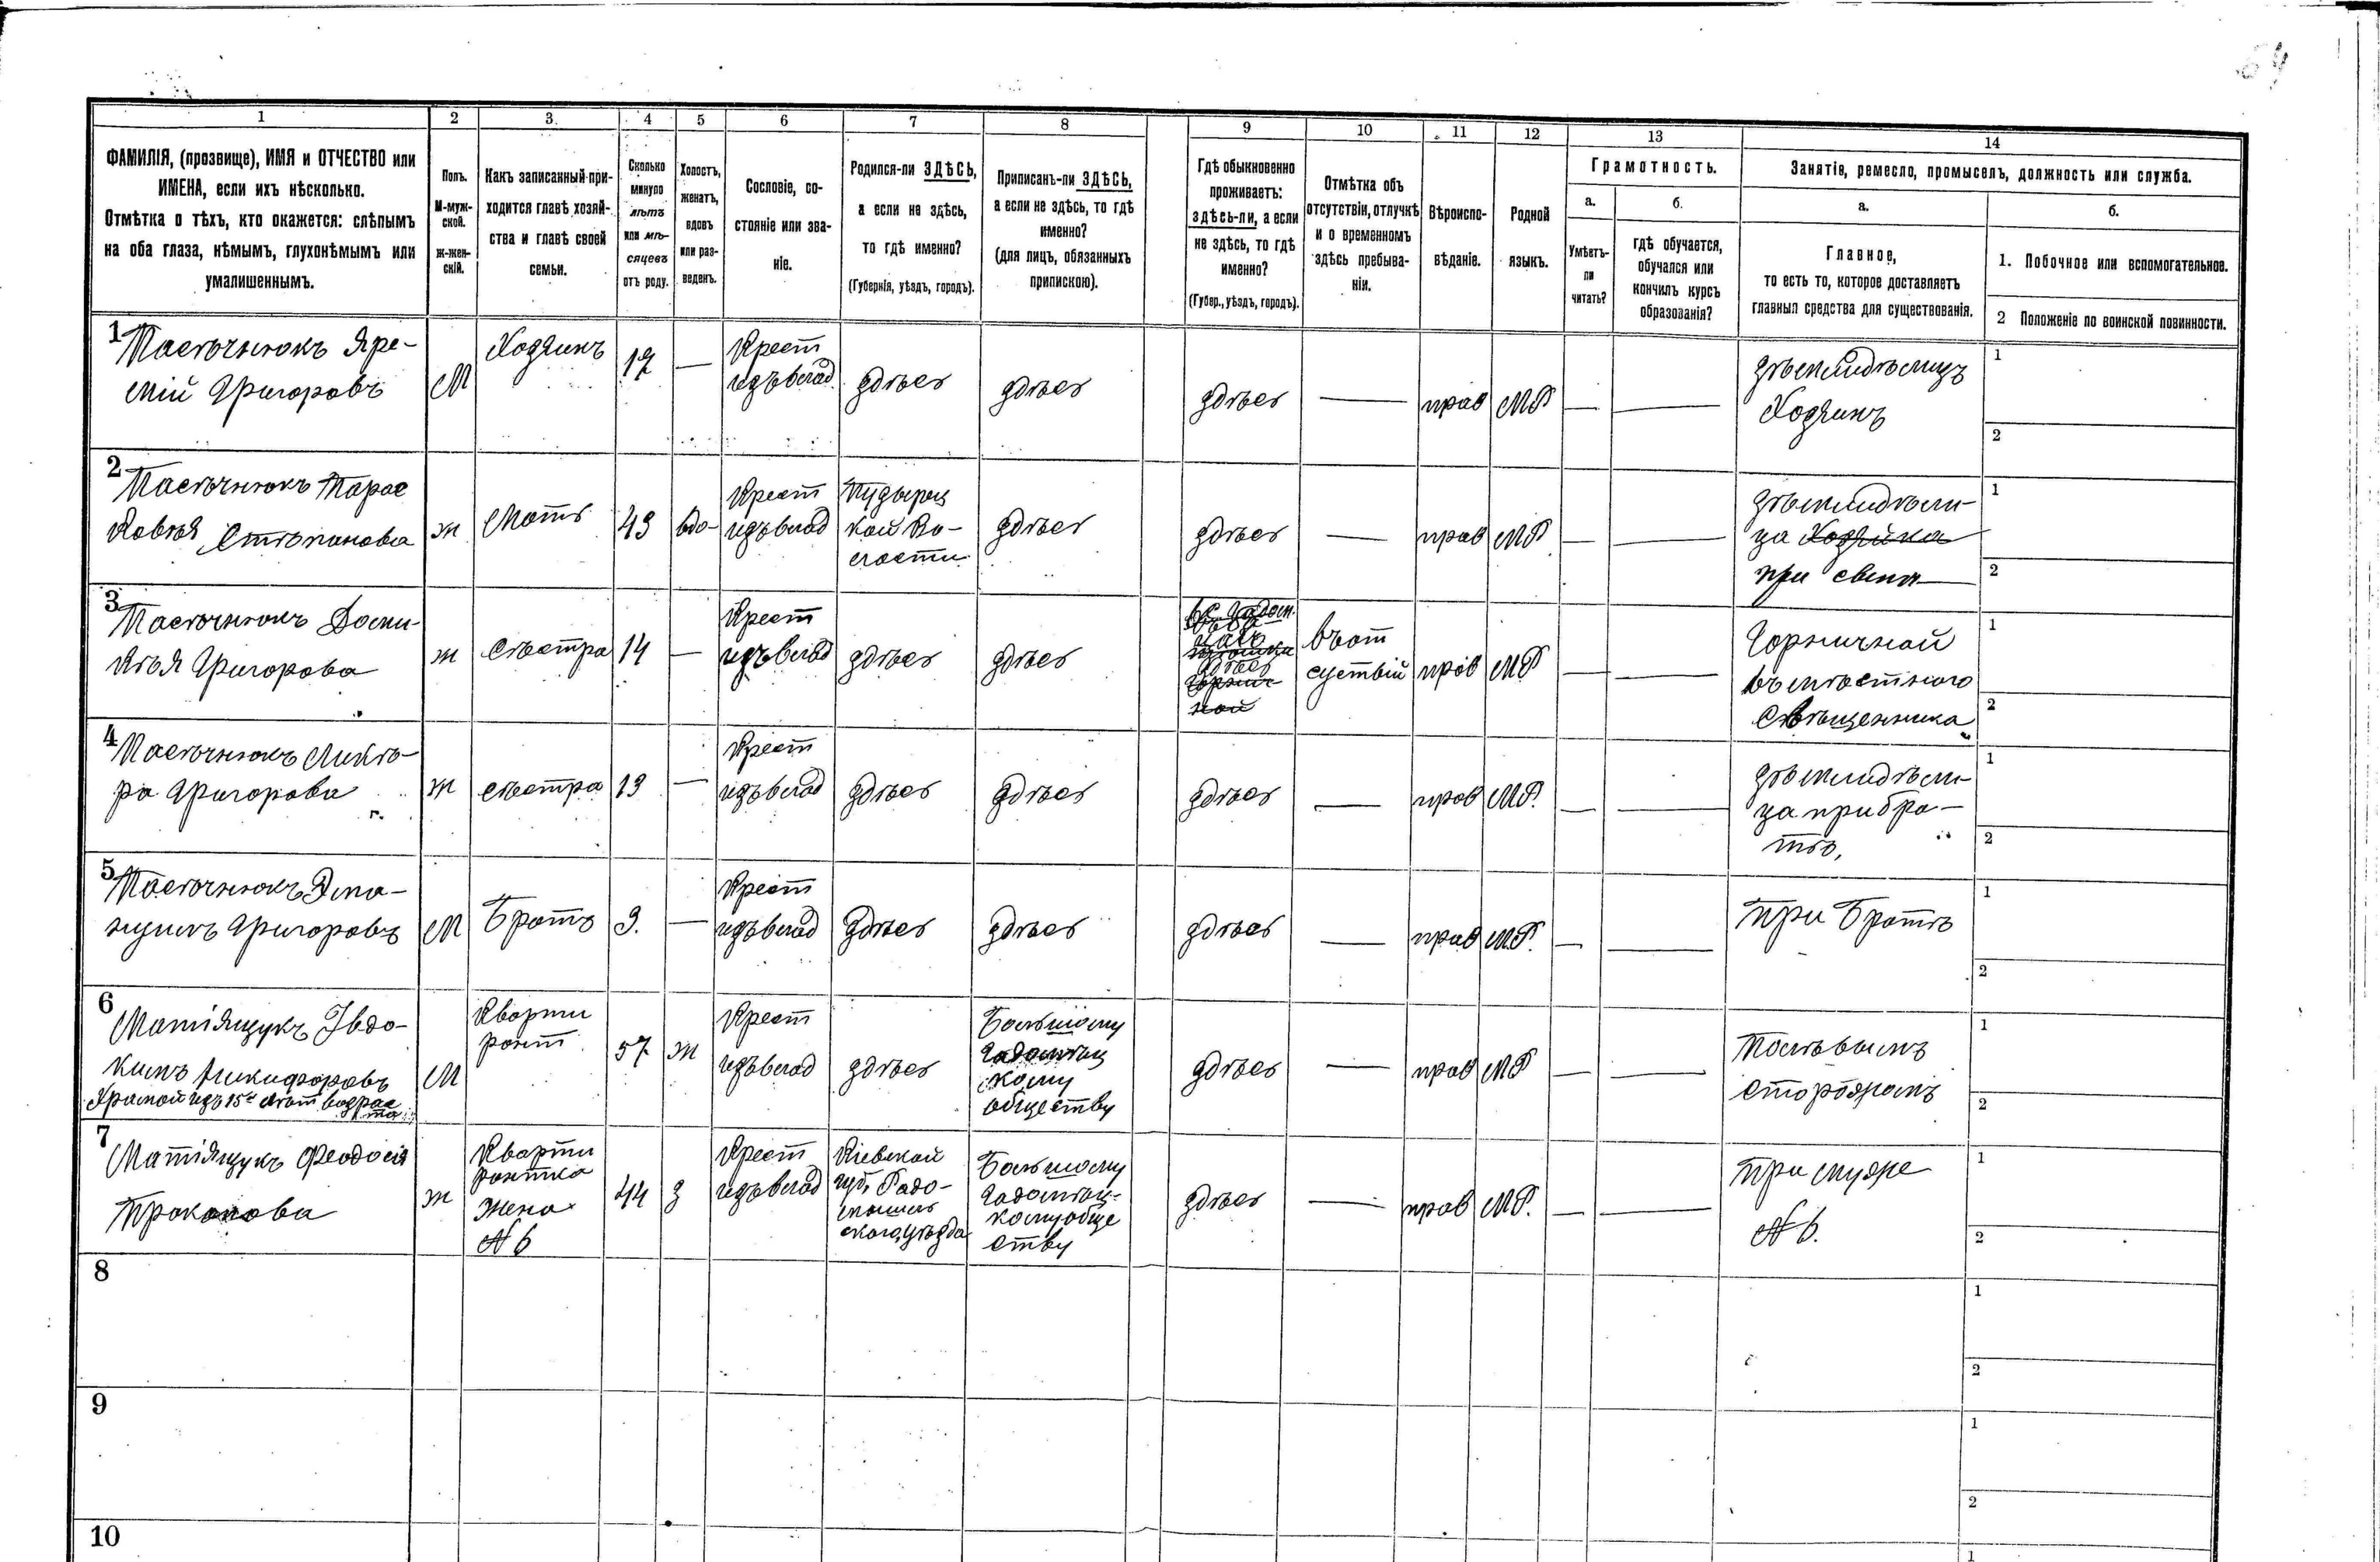 1 2 3. 4 5 6 7 8 9 10 11 12 13 14
ФАМИЛІЯ, (прозвище), ИМЯ и ОТЧЕСТВО или
ИМЕНА, если ихъ нѣсколько.
Отмѣтка о тѣхъ, кто окажется: слѣпымъ
на оба глаза, нѣмымъ, глухонѣмымъ или
умалишеннымъ.
Полъ.
М-муж-
ской.
ж-жен-
скій.
Какъ записанный при-
ходится главѣ хозяй-
ства и главѣ своей
семьи.
Сколько
минуло
лѣтъ
или мѣ-
сяцевъ
отъ роду.
Холостъ,
женатъ,
вдовъ
или раз-
веденъ.
Сословіе, со-
стояніе или зва-
ніе.
Родился-ли ЗДѢСЬ,
а если не здѣсь,
то гдѣ именно?
(Губернія, уѣздъ, городъ).
Приписанъ-ли ЗДѢСЬ,
а если не здѣсь, то гдѣ
именно?
(для лицъ, обязанныхъ
припискою).
Гдѣ обыкновенно
проживаетъ:
здѣсь-ли, а если
не здѣсь, то гдѣ
именно?
(Губер., уѣздъ, городъ).
Отмѣтка объ
отсутствіи, отлучкѣ
и о временномъ
здѣсь пребыва-
ніи.
Вѣроиспо-
вѣданіе.
Родной
языкъ.
Грамотность.
а.
Умѣетъ-
ли
читать?
б.
гдѣ обучается,
обучался или
кончилъ курсъ
образованія?
Занятіе, ремесло, промыселъ, должность или служба.
а.
Главное,
то есть то, которое доставляетъ
главныя средства для существованія.
б.
1. Побочное или вспомогательное.
2 Положеніе по воинской повинности.
1
Пасѣчнюкъ Яре-
мій Григоровъ
М
Хозяинъ
17
—
Крест
изъ влад
здѣсь
здѣсь
здѣсь
—
прав
МР
—
—
Зѣмлидѣлицъ
Хозяинъ
1
2
2
Пасѣчнюкъ Парас
ковѣя Стѣпанова
ж
Мать
43
вдо-
Крест
изъ влад
Пудырец
кой Во-
лости
здѣсь
здѣсь
—
прав
МР
—
—
Зѣмлидѣли-
ца Хозяйка
при сынѣ
1
2
3
Пасѣчнюкъ Доми-
кѣя Григорова
ж
Сѣстра
14
—
Крест
изъ влад
здѣсь
здѣсь
здѣсь
въ от
сутствій
прав
МР
—
—
Горничной
въ мѣстного
Свѣщенника
1
2
4
ПасѣчнюкъЛикѣ-
ра Григорова
ж
сѣстра
13
—
Крест
изъ влад
здѣсь
здѣсь
здѣсь
—
прав
МР.
—
—
Зѣмлидѣли-
ца при бра-
тѣ,
1
2
5
Григоровъ
М
Братъ
9.
—
Крест
изъ влад
здѣсь
здѣсь
здѣсь
—
прав
МР.
—
—
При Братѣ
1
2
6
Матіящукъ Івдо-
кимъ Никифоровъ
Хромой изъ 15ᵗ лѣт возрас
та
М
Кварти
рант
57
ж
Крест
изъ влад
здѣсь
Большому
Гадомѣц
кому
обществу
здѣсь
—
прав
МР
—
—
Полѣвымъ
сторожомъ
1
2
7
Матіящукъ Феодосія
Прокопова
ж
Кварти
рантка
жена
№ 6
44
з
Крест
изъ влад
Кіевской
губ. Радо-
мышль
ского, уѣзда
Большому
Гадомѣц-
кому обще
ству
здѣсь
—
прав
МР.
—
—
При мужѣ
№ 6.
1
2
8
1
2
9
1
2
10
1